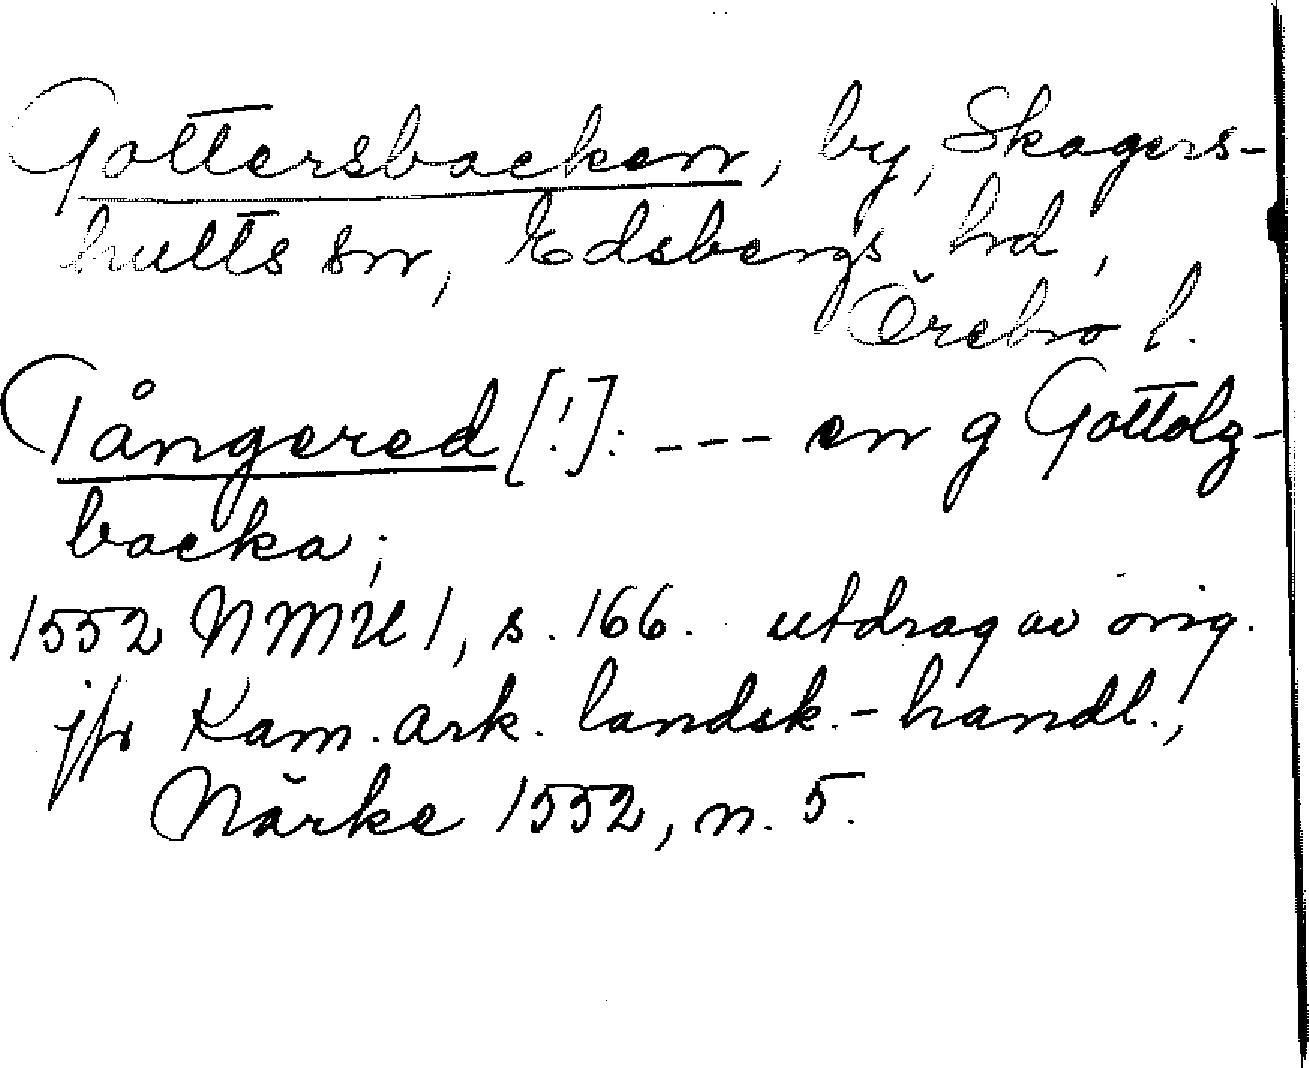 Gottersbacken, by, Skagers-
hults sn, Edsbergs hd,
Örebro l.
Tångered [!]: --- en g Gottolg-
backa;
1552 NMU 1, s. 166. utdrag av orig.
jfr Kam. ark. landsk.-handl.,
Närke 1552, n. 5.